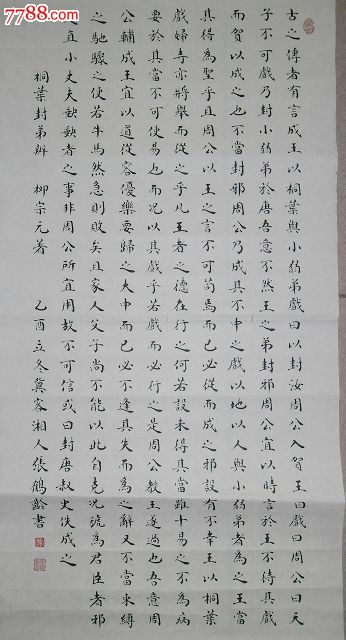 7788.com
古之傳者有言成王以桐葉與小弱弟戲曰以封汝周公入賀王曰戲曰周公曰天
子不可戲乃封小弱弟於唐吾意不然王之弟封邪周公宜以時言於王不待其戲
而賀以成之也不當封邪周公乃成其不中之戲以地以人與小弱弟者為之主當
其得為聖乎且周公以王之言不可苟焉而已必從而成之邪設有不幸王以桐葉
戲婦寺亦將舉而從之乎凡王者之德在行之何若設未得其當雖十易之不為病
要於其當不可使易也而況以其戲乎若戲而必行之是周公教王遂過也吾意周
公輔成王宜以道從容優樂要歸之大中而已必不逢其失而為之辭又不當束縛
之馳驟之使若牛馬然急則敗矣且家人父子尚不能以此自克況號為君臣者邪
是直小丈夫缺缺者之事非周公所宜用故不可信或曰封唐叔史佚成之
桐葉封弟辨 柳宗元著 乙酉立冬冀客湘人張鶴齡書